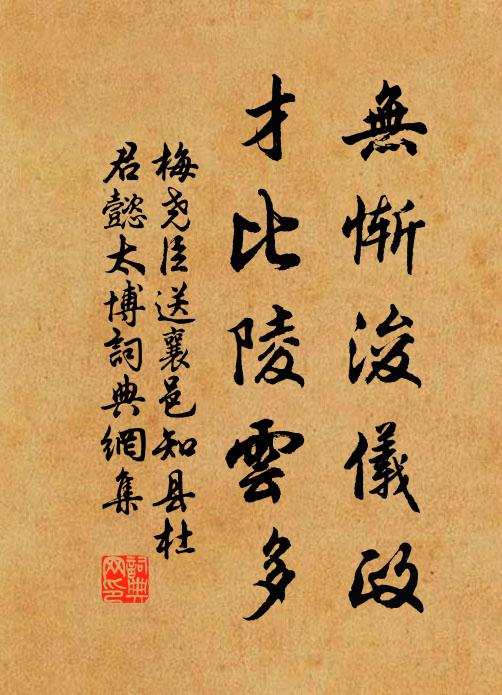 無慚浚儀政
才比陵雲多
梅尧臣送襄邑知县杜
君懿太博詞典網集
詞典网印